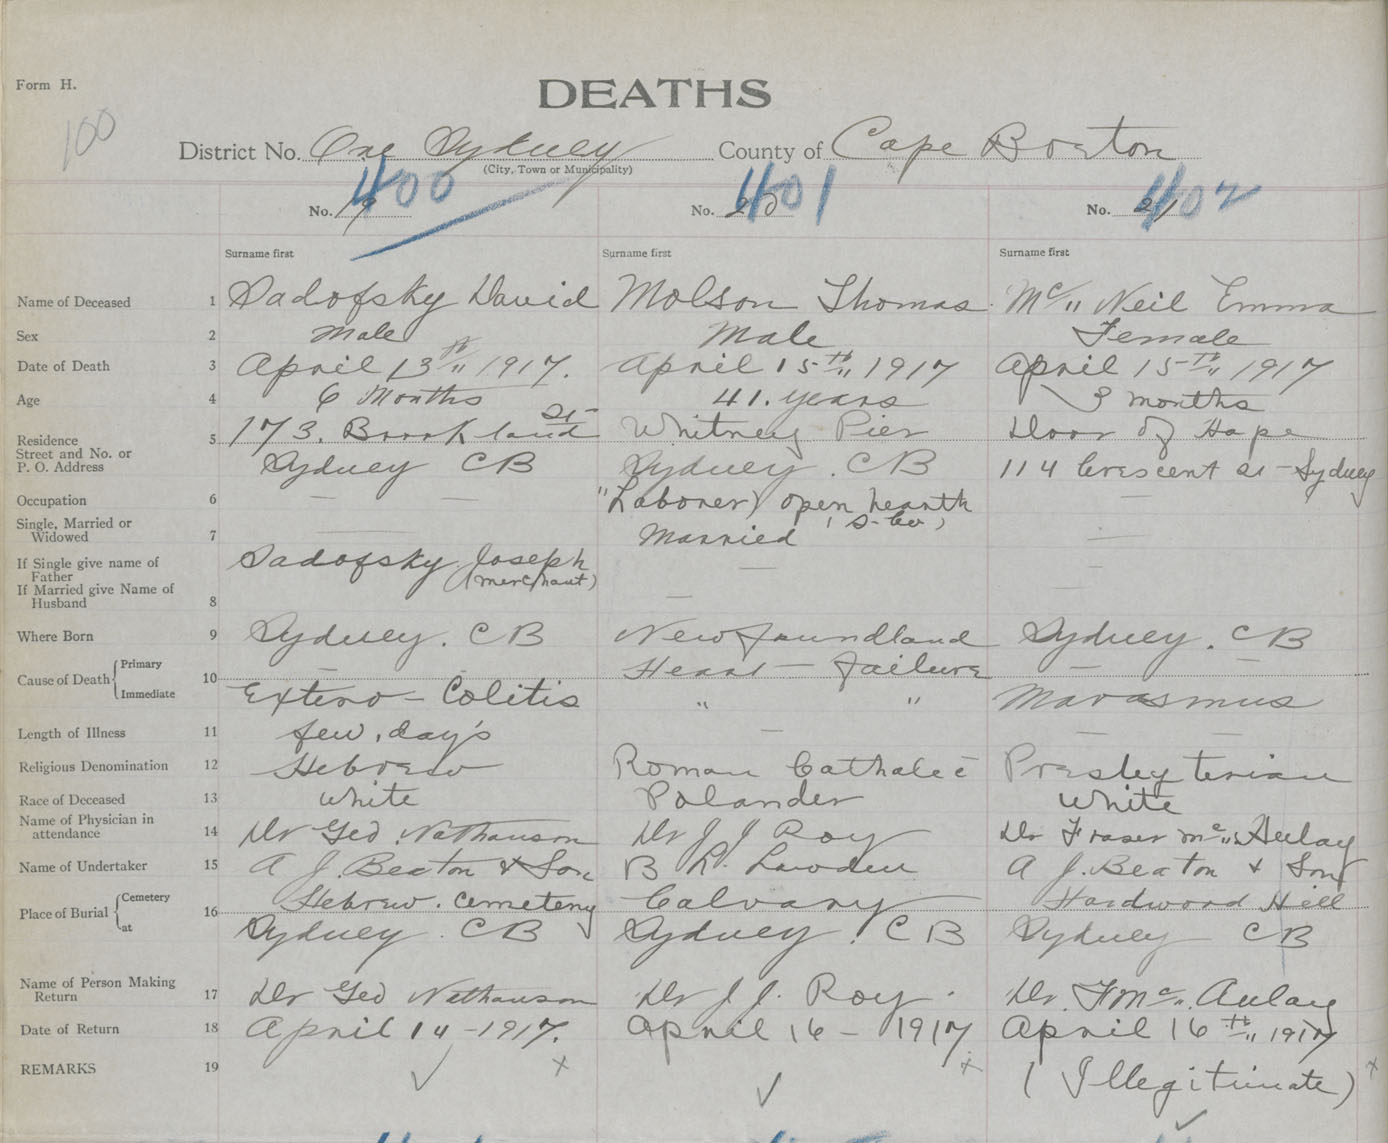 Form H.
DEATHS
100
District No. One Sydney County of Cape Breton
(City, Town or Municipality)
400 401 402
No. 19 No. 20 No. 21
Surname first Surname first Surname first
Name of Deceased 1 Sadofsky David Molson Thomas McNeil Emma
Sex 2 Male Male Female
Date of Death 3 April 13th 1917. April 15th 1917 April 15th 1917
Age 4 6 Months 41. years 3 months
Residence Street and No. or P. O. Address 5 173. Brookland St Whitney Pier Door of Hope
Sydney CB Sydney. CB 114 Crescent St - Sydney
Occupation 6 — — "Laborer) open hearth (S-Co) —
Single, Married or Widowed 7 — Married —
If Single give name of Father Sadofsky Joseph (merchant) — —
If Married give Name of Husband 8 — —
Where Born 9 Sydney. CB Newfoundland Sydney. CB
Cause of Death Primary 10 — Heart - failure — —
Immediate Extero - Colitis " " Marasmus
Length of Illness 11 few, day's — — —
Religious Denomination 12 Hebrew Roman Cathalic Presbyterian
Race of Deceased 13 White Polander White
Name of Physician in attendance 14 Dr Geo Nathanson Dr J J Roy Dr Fraser McAulay
Name of Undertaker 15 A J. Beaton & Son B L. Lowden A J. Beaton & Son
Place of Burial Cemetery 16 Hebrew. Cemetery Calvary Hardwood Hill
at Sydney. CB Sydney. CB Sydney CB
Name of Person Making Return 17 Dr Geo Nathanson Dr J J. Roy Dr. F McAulay
Date of Return 18 April 14 - 1917. April 16 - 1917 April 16th 1917
REMARKS 19 (Illegitimate)